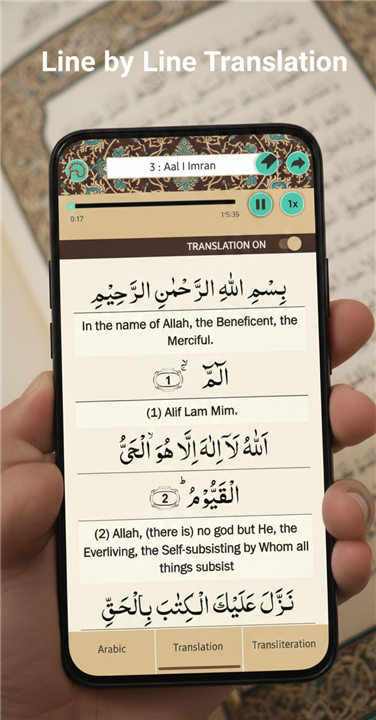 Line by Line Translation
3 : Aal I Imran
0:17
1:5:35
1x
TRANSLATION ON
بِسْمِ اللهِ الرَّحْمٰنِ الرَّحِيْمِ
In the name of Allah, the Beneficent, the
Merciful.
الٓمّٓ ۚۙ 1
(1) Alif Lam Mim.
اَللهُ لَاۤ اِلٰهَ اِلَّا هُوَ ۙ الْحَىُّ
الْقَيُّوْمُ ؕ 2
(2) Allah, (there is) no god but He, the
Everliving, the Self-subsisting by Whom all
things subsist
نَزَّلَ عَلَيْكَ الْكِتٰبَ بِالْحَقِّ
Arabic
Translation
Transliteration